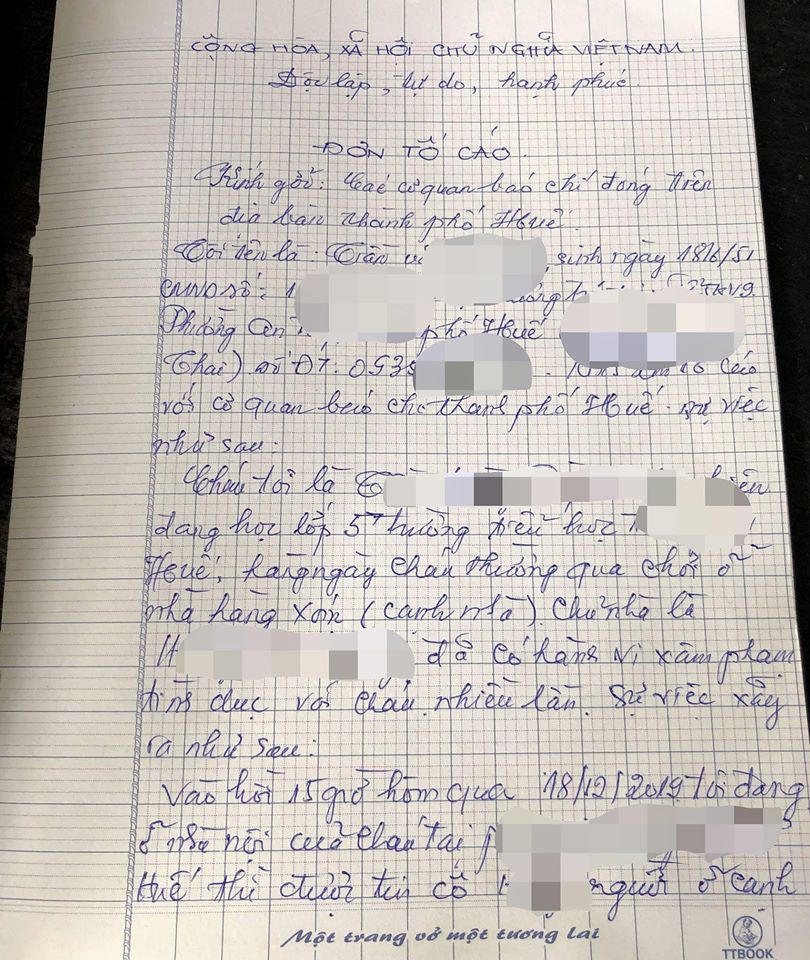 CỘNG HÒA, XÃ HỘI CHỦ NGHĨA VIỆT NAM.
Độc lập, tự do, hạnh phúc.
ĐƠN TỐ CÁO.
Kính gởi: Các cơ quan báo chí đóng trên
địa bàn thành phố Huế.
Tôi tên là: Trần , sinh ngày 18/6/51
CMND số: 1
Phường An phố Huế
số ĐT: 0935 .
với cơ quan báo chí thành phố Huế. sự việc
như sau:
Cháu tôi là
đang học lớp 5 trường tiểu học
Huế, hàng ngày cháu thường qua chơi ở
nhà hàng xóm (cạnh nhà). Chủ nhà là
H đã có hành vi xâm phạm
tình dục với cháu nhiều lần. Sự việc xảy
ra như sau:
Vào hồi 15 giờ hôm qua 18/12/2019 tôi đang
ở nhà nội của cháu tại
Huế thì được tin cô người ở cạnh
Một trang vở một tương lai
TTBOOK